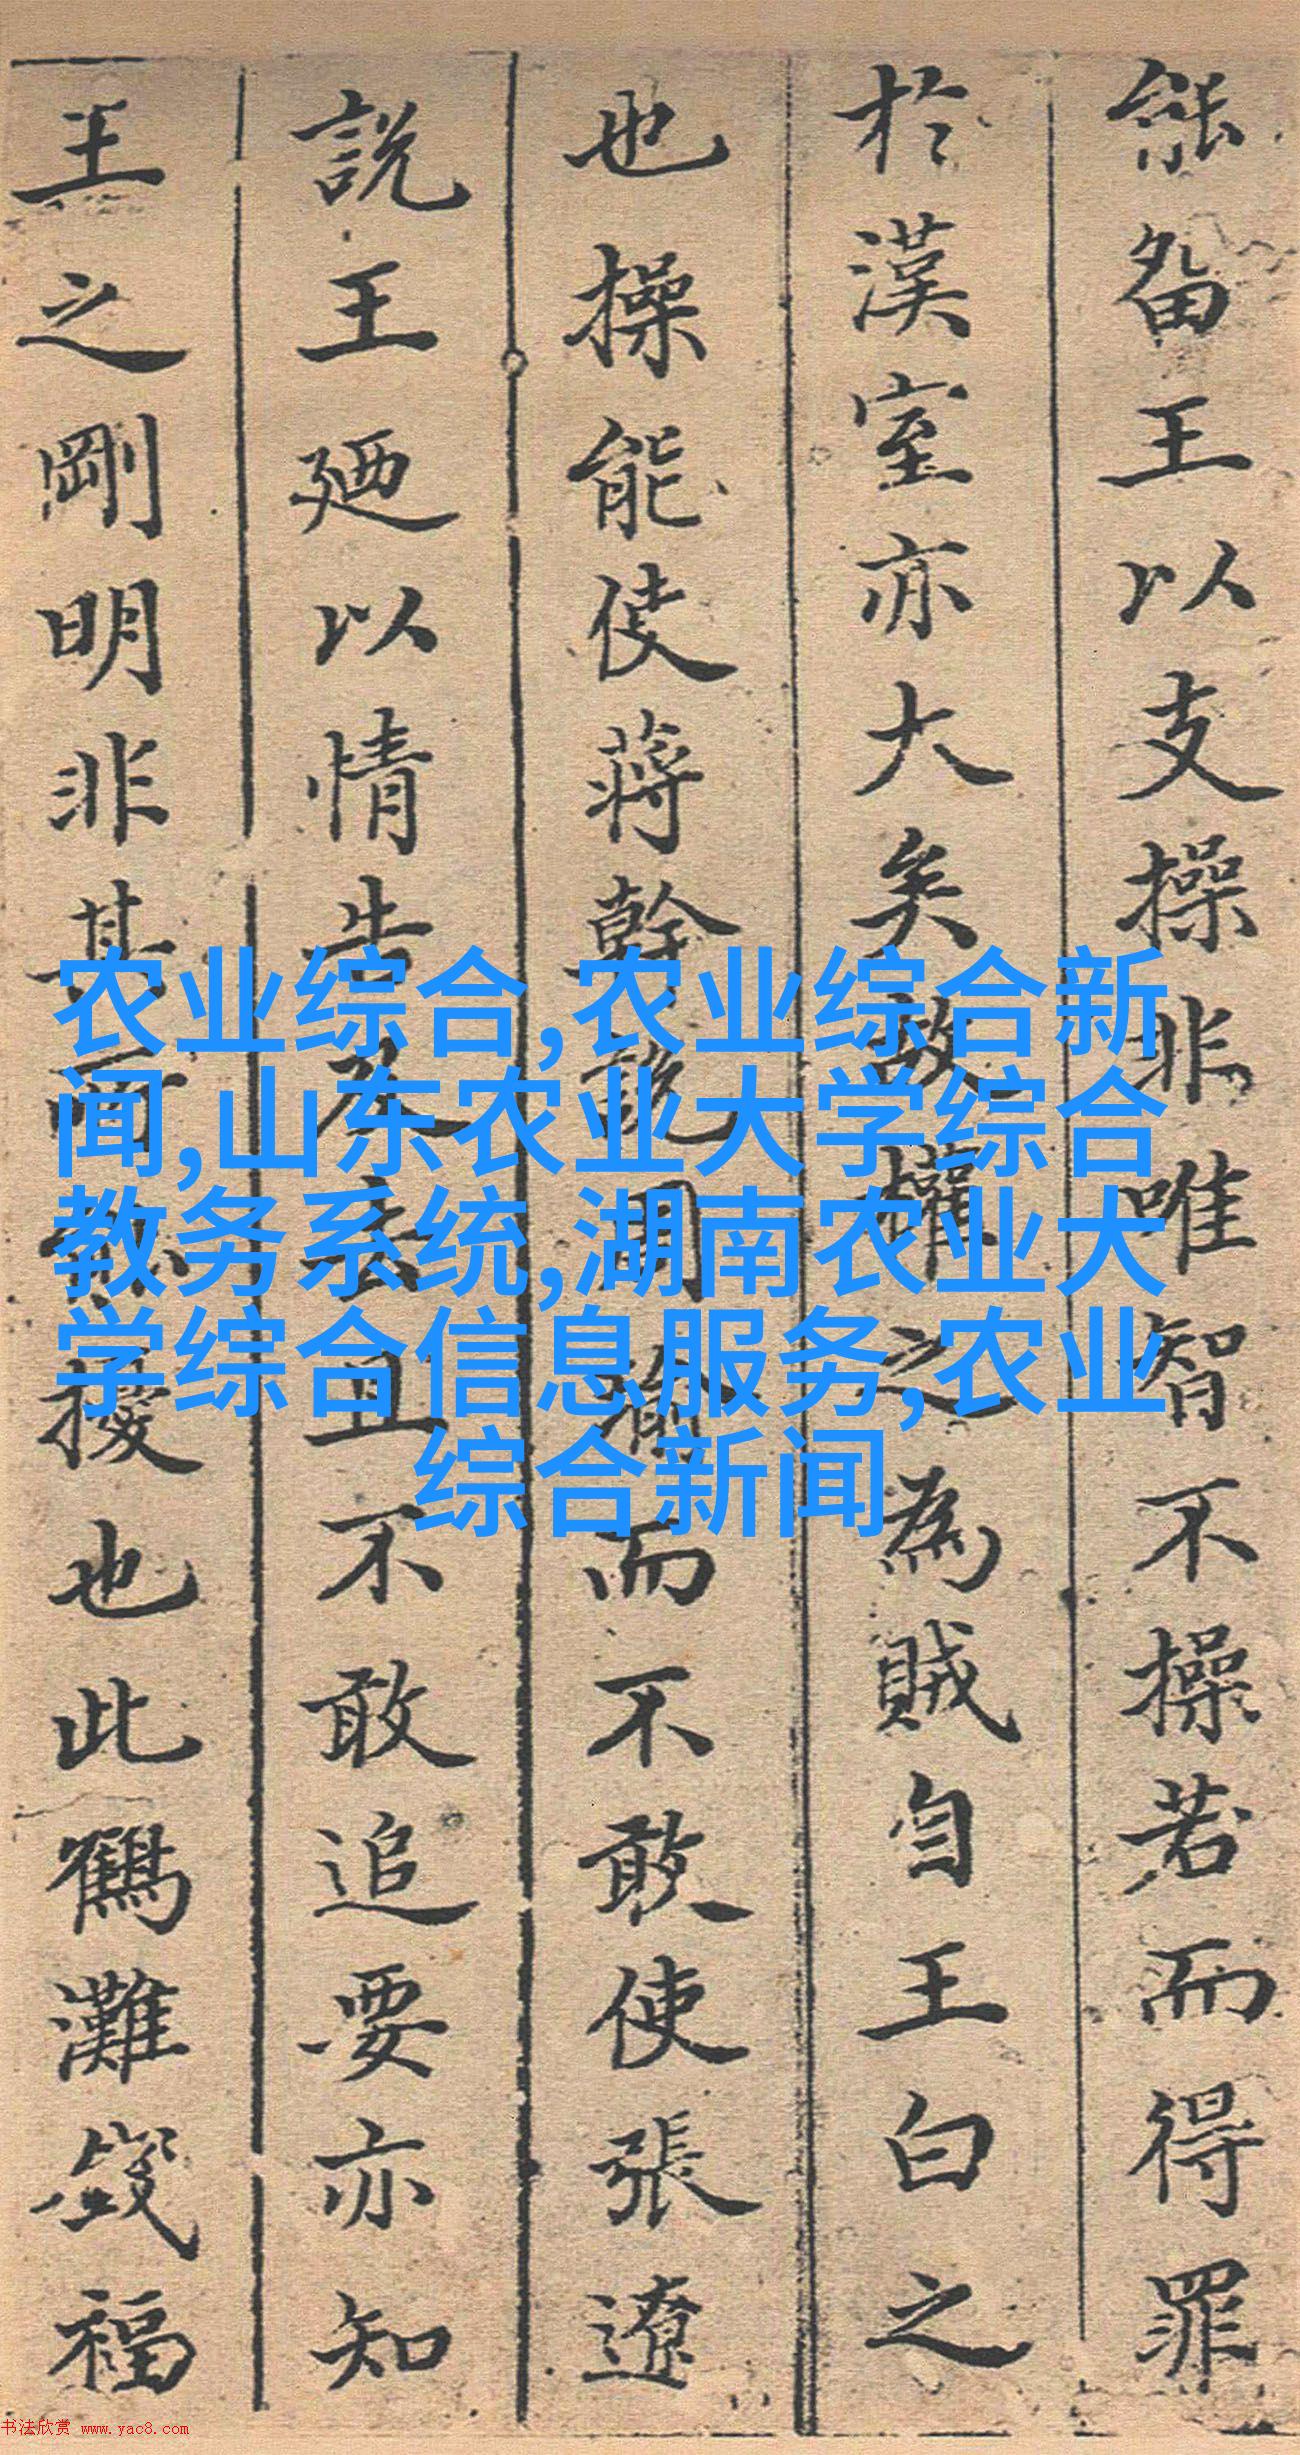 能畱王以支操非唯智不操若而得罪
於漢室亦大矣故權之為賊自王白之
也操能使蔣幹說周瑜而不敢使張遼
說王廼以情告及去且不敢追要亦知
王之剛明非其擾也此鶴灘錢福
农业综合,农业综合新
闻,山东农业大学综合
教务系统,湖南农业大
学综合信息服务,农业
综合新闻
书法欣赏 www.yac8.com